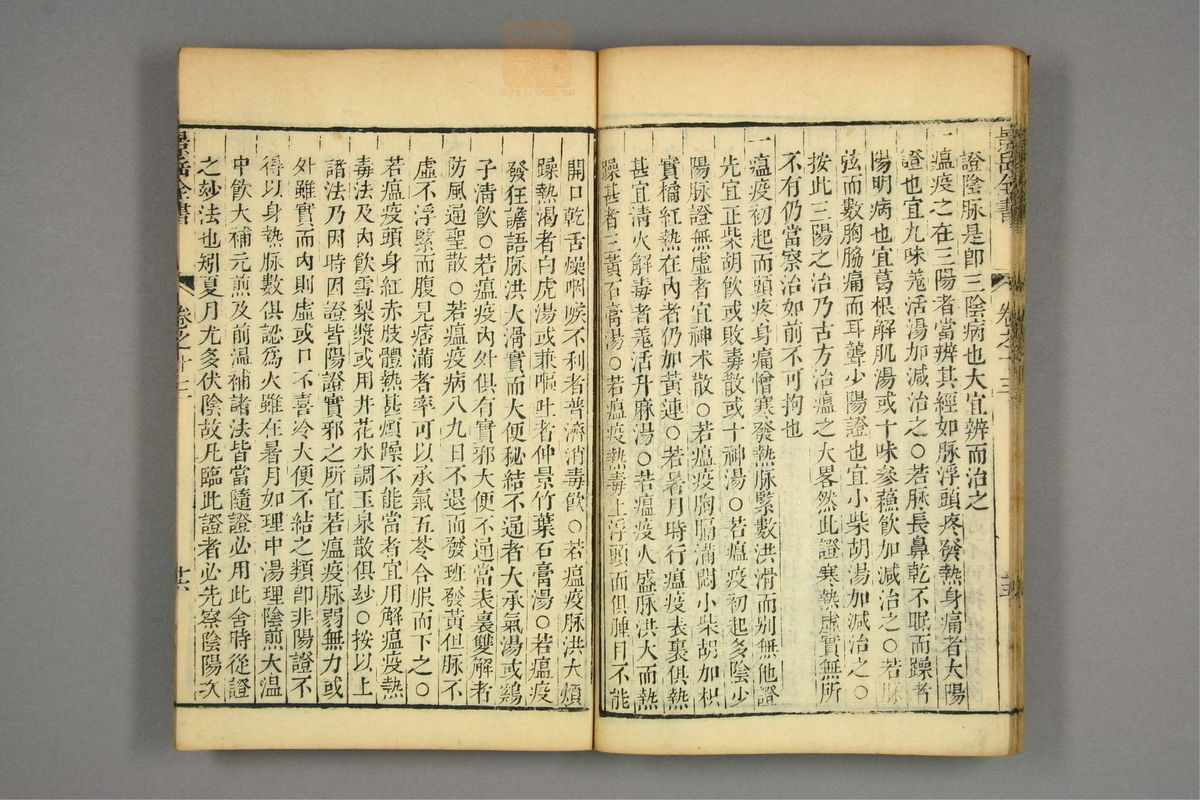 景岳全書 卷之十三
證陰脉是卽三陰病也大宜辨而治之
一瘟疫之在三陽者當辨其經如脉浮頭疼發熱身痛者太陽
證也宜九味羗活湯加減治之○若脉長鼻乾不眠而躁者
陽明病也宜葛根解肌湯或十味參蘇飲加減治之○若脉
弦而數胸脇痛而耳聾少陽證也宜小柴胡湯加減治之○
按此三陽之治乃古方治瘟之大畧然此證寒熱虛實無所
不有仍當察治如前不可拘也
一瘟疫初起而頭疼身痛憎寒發熱脉緊數洪滑而別無他證
先宜正柴胡飲或敗毒散或十神湯○若瘟疫初起多陰少
陽脉證無虛者宜神术散○若瘟疫胸膈滿悶小柴胡加枳
實橘紅熱在內者仍加黃連○若暑月時行瘟疫表裏俱熱
甚宜淸火解毒者羗活升麻湯○若瘟疫火盛脉洪大而熱
躁甚者三黃石膏湯○若瘟疫熱毒上浮頭面俱腫目不能
開口乾舌燥咽喉不利者普濟消毒飲○若瘟疫脉洪大煩
躁熱渴者白虎湯或兼嘔吐者仲景竹葉石膏湯○若瘟疫
發狂譫語脉洪大滑實而大便秘結不通者大承氣湯或鷄
子清飲○若瘟疫內外俱有實邪大便不通當表裏雙解者
防風通聖散○若瘟疫病八九日不退而發班發黃但脉不
虛不浮緊而腹見痞滿者率可以承氣五苓合服而下之○
若瘟疫頭身紅赤肢體熱甚煩躁不能當者宜用解瘟疫熱
毒法及內飲雪梨漿或用井花水調玉泉散俱玅○按以上
諸法乃因時因證皆陽證實邪之所宜若瘟疫脉弱無力或
外雖實而內則虛或口不喜冷大便不結之類卽非陽證不
得以身熱脉數俱認爲火雖在暑月如理中湯理陰煎大溫
中飲大補元煎及前溫補諸法皆當隨證必用此舍時從證
之玅法也矧夏月尤多伏陰故凡臨此證者必先察陰陽次
景岳全書 卷之十三 廿六